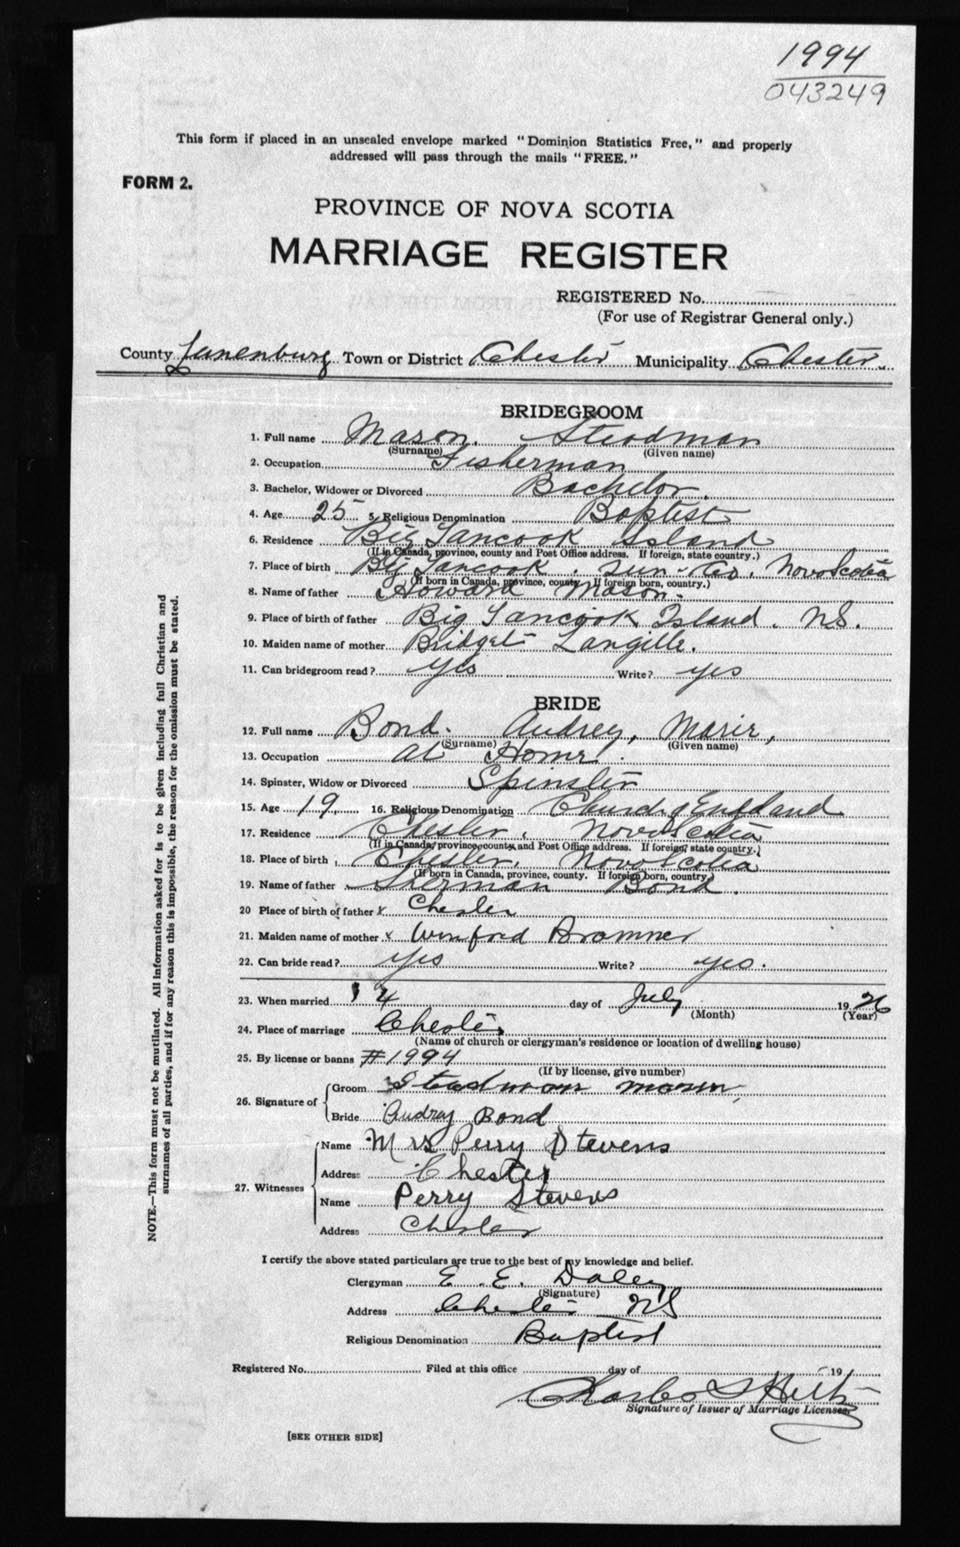 1994
043249
This form if placed in an unsealed envelope marked "Dominion Statistics Free," and properly
addressed will pass through the mails "FREE."
FORM 2.
PROVINCE OF NOVA SCOTIA
MARRIAGE REGISTER
REGISTERED No.
(For use of Registrar General only.)
County Lunenburg Town or District Chester Municipality Chester
BRIDEGROOM
1. Full name Mason. Steadman
(Surname) (Given name)
2. Occupation Fisherman
3. Bachelor, Widower or Divorced Bachelor.
4. Age 25 5. Religious Denomination Baptist
6. Residence Big Tancook Island
(If in Canada, province, county and Post Office address. If foreign, state country.)
7. Place of birth Big Tancook. Lun- Co. Nova Scotia
(If born in Canada, province, county. If foreign born, country.)
8. Name of father Howard Mason.
9. Place of birth of father Big Tancook Island. NS.
10. Maiden name of mother Bridget Langille.
11. Can bridegroom read? yes Write? yes
BRIDE
12. Full name Bond. Audrey, Marie,
(Surname) (Given name)
13. Occupation at Home.
14. Spinster, Widow or Divorced Spinster
15. Age 19 16. Religious Denomination Church of England
17. Residence Chester. Nova Scotia
(If in Canada, province, county and Post Office address. If foreign, state country.)
18. Place of birth Chester. Nova Scotia
(If born in Canada, province, county. If foreign born, country.)
19. Name of father Bond.
20 Place of birth of father x Chester
21. Maiden name of mother x
22. Can bride read? yes Write? yes.
23. When married 14 day of July 1926
(Month) (Year)
24. Place of marriage Chester
(Name of church or clergyman's residence or location of dwelling house)
25. By license or banns #1994
(If by license, give number)
26. Signature of Groom Steadman Mason
Bride Audrey Bond
27. Witnesses Name Mrs Perry Stevens
Address Chester
Name Perry Stevens
Address Chester
I certify the above stated particulars are true to the best of my knowledge and belief.
Clergyman E. E. Daley
(Signature)
Address Chester NS
Religious Denomination Baptist
Registered No. Filed at this office day of 19
Charles Hiltz
Signature of Issuer of Marriage Licenses
[SEE OTHER SIDE]
NOTE.—This form must not be mutilated. All information asked for is to be given including full Christian and
surnames of all parties, and if for any reason this is impossible, the reason for the omission must be stated.